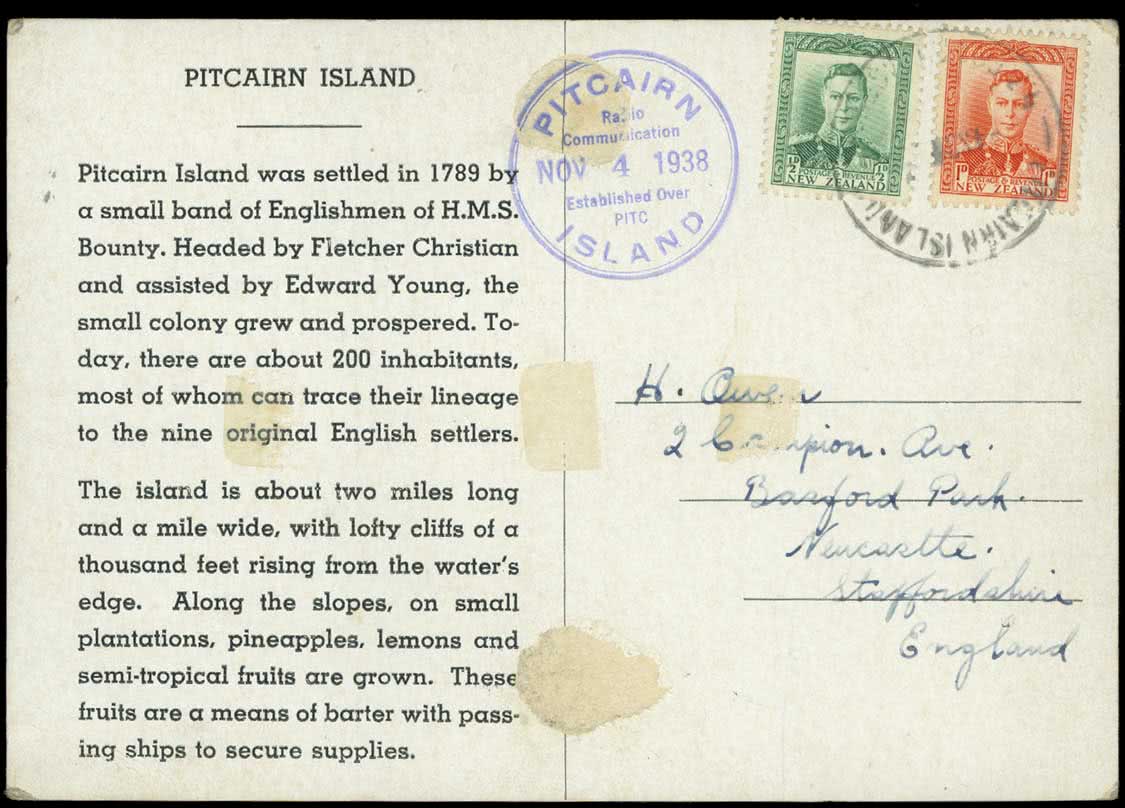 PITCAIRN ISLAND
Pitcairn Island was settled in 1789 by
a small band of Englishmen of H.M.S.
Bounty. Headed by Fletcher Christian
and assisted by Edward Young, the
small colony grew and prospered. To-
day, there are about 200 inhabitants,
most of whom can trace their lineage
to the nine original English settlers.
The island is about two miles long
and a mile wide, with lofty cliffs of a
thousand feet rising from the water's
edge. Along the slopes, on small
plantations, pineapples, lemons and
semi-tropical fruits are grown. These
fruits are a means of barter with pass-
ing ships to secure supplies.
PITCAIRN
Radio
Communication
NOV 4 1938
Established Over
PITC
ISLAND
½D ½D
POSTAGE & REVENUE
NEW ZEALAND
1D 1D
POSTAGE & REVENUE
NEW ZEALAND
PITCAIRN ISLAND
H. Owen
2 Ave.
Basford Park.
Newcastle.
Staffordshire
England